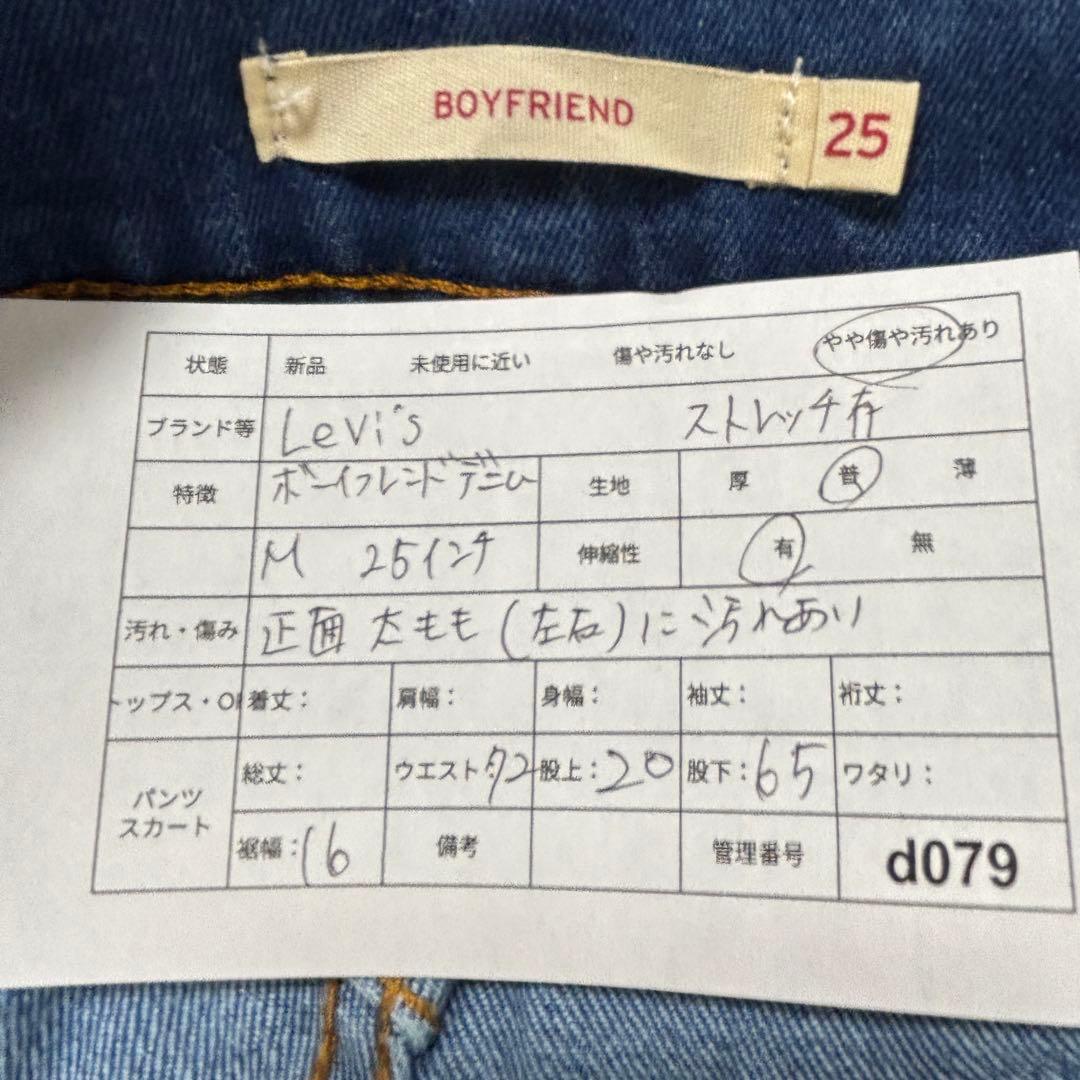 BOYFRIEND 25
状態 新品 未使用に近い 傷や汚れなし やや傷や汚れあり
ブランド等 Levi's ストレッチ有
特徴 ボーイフレンドデニム 生地 厚 普 薄
M 25インチ 伸縮性 有 無
汚れ・傷み 正面 太もも (左右) に汚れあり
トップス・O 着丈: 肩幅: 身幅: 袖丈: 裄丈:
パンツ スカート 総丈: ウエスト:72 股上:20 股下:65 ワタリ:
裾幅:16 備考 管理番号 d079